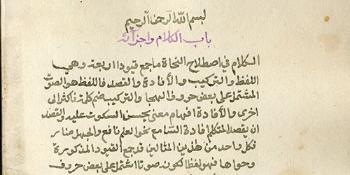 بسم الله الرحمن الرحيم
باب الكلام واجزائه
الكلام في اصطلاح النحاة ما جمع قيودا اربعة وهي
اللفظ والتركيب والافادة والقصد فاللفظ هو الصوت
المشتمل على بعض حروف الهجا والتركيب ضم كلمة فاكثر الى
اخرى والافادة افهام معنى يحسن السكوت عليه والقصد
ان يقصد المتكلم افادة السامع نحو العلم نافع والجهل ضار
فكل واحد من هذين المثالين قد جمع القيود المذكورة
وحواها فهو لفظ لكونه صوتا اشتمل على بعض حروف